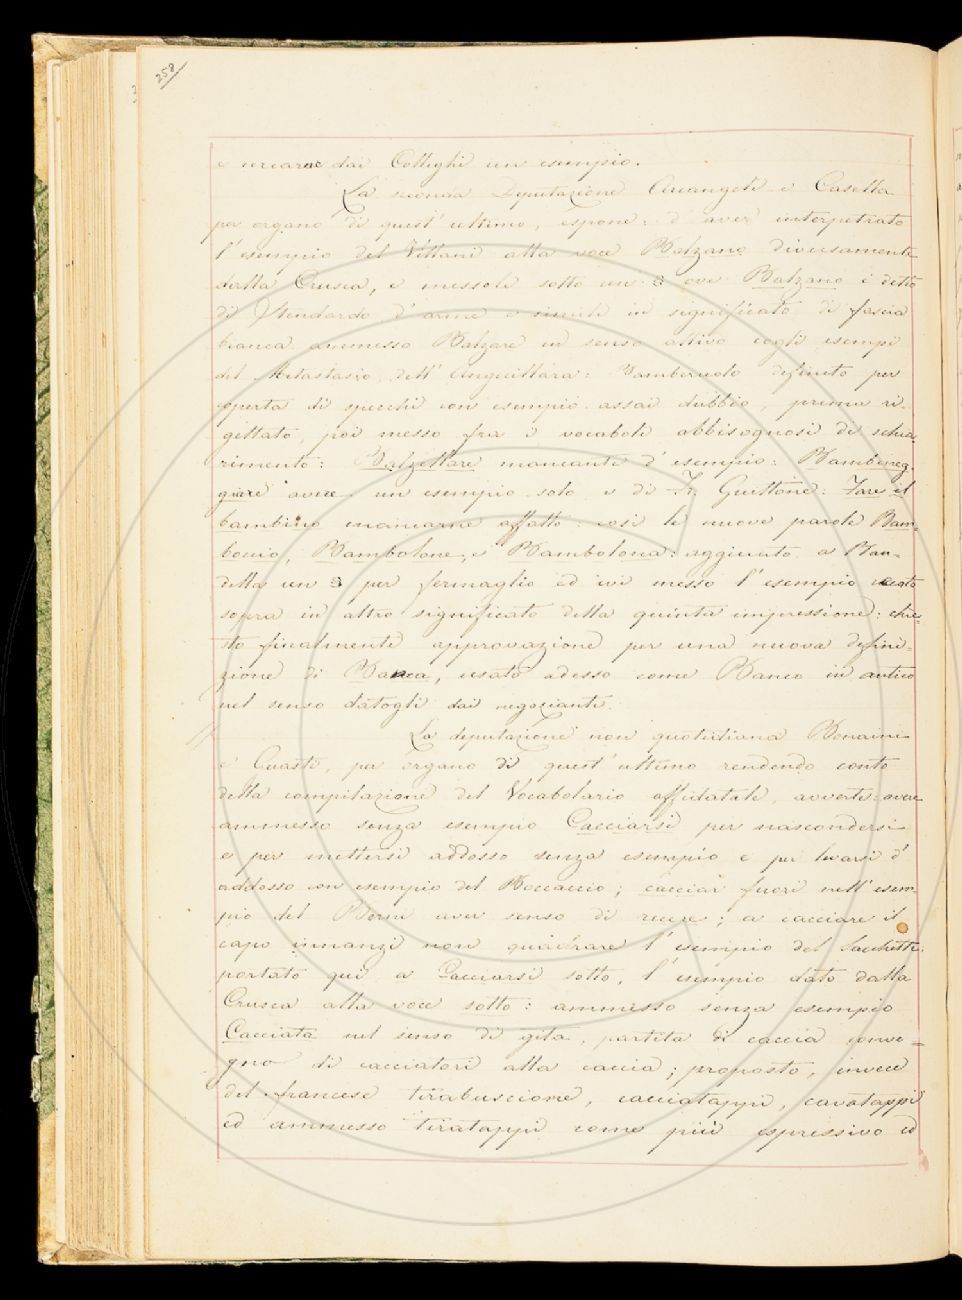 258
e cercare dai Colleghi un esempio.
La seconda Deputazione Arcangeli e Casella
per organo di quest' ultimo, espone: d' aver interpetrato
l' esempio del Villani alla voce Balzano diversamente
dalla Crusca, e messolo sotto un § ove Balzano è detto
di Stendardo d' arme e simili in significato di fascia
bianca ammesso Balzare in senso attivo cogli esempi
del Metastasio, dell' Anguillara: Bambervolo definito per
operta di specchi con esempio assai dubbio, prima ri-
gettato, poi messo fra i vocaboli abbisognosi di schia-
rimento: Balzellare mancante d' esempio: Bambineg-
giare avere un esempio solo e di Fr. Guittone: Fare il
bambino mancarne affatto: così le nuove parole Bam-
boccio, Bambolone, e Bambolona: aggiunto a Ban-
della un § per fermaglio ed ivi messo l' esempio recato
sopra in altro significato della quinta impressione: chie-
sto finalmente approvazione per una nuova defini-
zione di Banca, usato adesso come Banco in antico
nel senso datogli dai negozianti.
La deputazione non quotidiana Bonaini
e Guasti, per organo di quest' ultimo rendendo conto
della compilazione del Vocabolario affidatale, avverte: avere
ammesso senza esempio Cacciarsi per nascondersi
e per mettersi addosso senza esempio e per levarsi d'
addosso con esempio del Boccaccio; cacciar fuori nell' esem-
pio del Berni aver senso di recere; a cacciare il
capo innanzi non quadrare l' esempio del Sacchetti
portato qui a Cacciarsi sotto, l' esempio dato dalla
Crusca alla voce sotto: ammesso senza esempio
Cacciata nel senso di gita, partita di caccia conve-
gno di cacciatori alla caccia; proposto, invece
del francese tirabuscione, cacciatappi, cavatappi
ed ammesso tiratappi come più espressivo ed